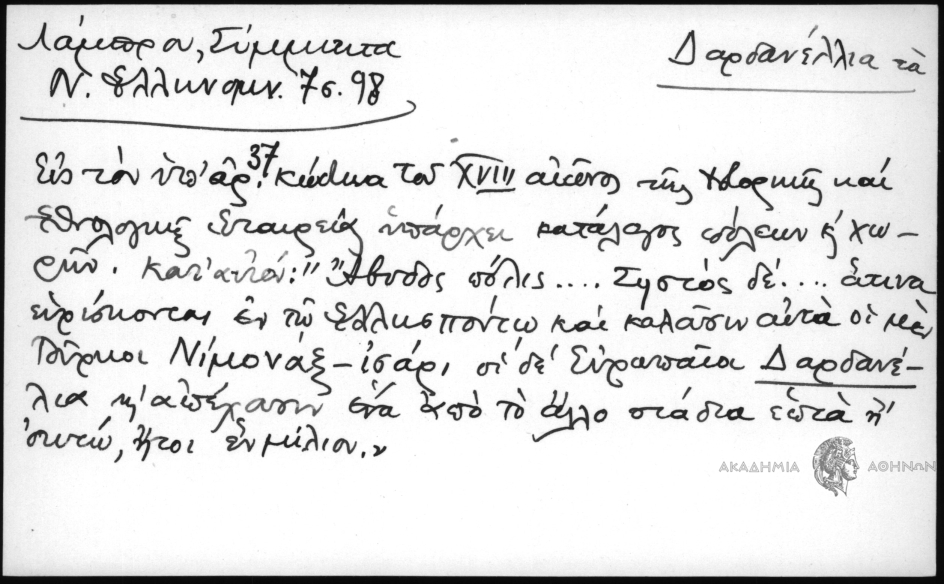 Λάμπρου, Σύμμικτα
Ν. Ελληνομν. 7 σ. 98
Δαρδανέλλια τὰ
Εἰς τὸν ὑπ' ἀρ. 37 κώδικα τοῦ XVIII αἰῶνος τῆς Ἱστορικῆς καὶ
Ἐθνολογικῆς Ἑταιρείας ὑπάρχει κατάλογος πόλεων κ' χω-
ρῶν. Κατ' αὐτόν: "Ἄβυδος πόλις .... Σηστός δέ .... ἅτινα
εὑρίσκονται ἐν τῷ Ἑλλησπόντῳ καὶ καλοῦσιν αὐτὰ οἱ μὲν
Τοῦρκοι Νιμονάξ-ἰσάρ, οἱ δέ Εὐρωπαῖοι Δαρδανέ-
λια κ' ἀπέχουσιν ἕνα ἀπὸ τὸ ἄλλο στάδια ἑπτὰ ἤ
ὀκτώ, ἤτοι ἓν μίλιον."
ΑΚΑΔΗΜΙΑ ΑΘΗΝΩΝ